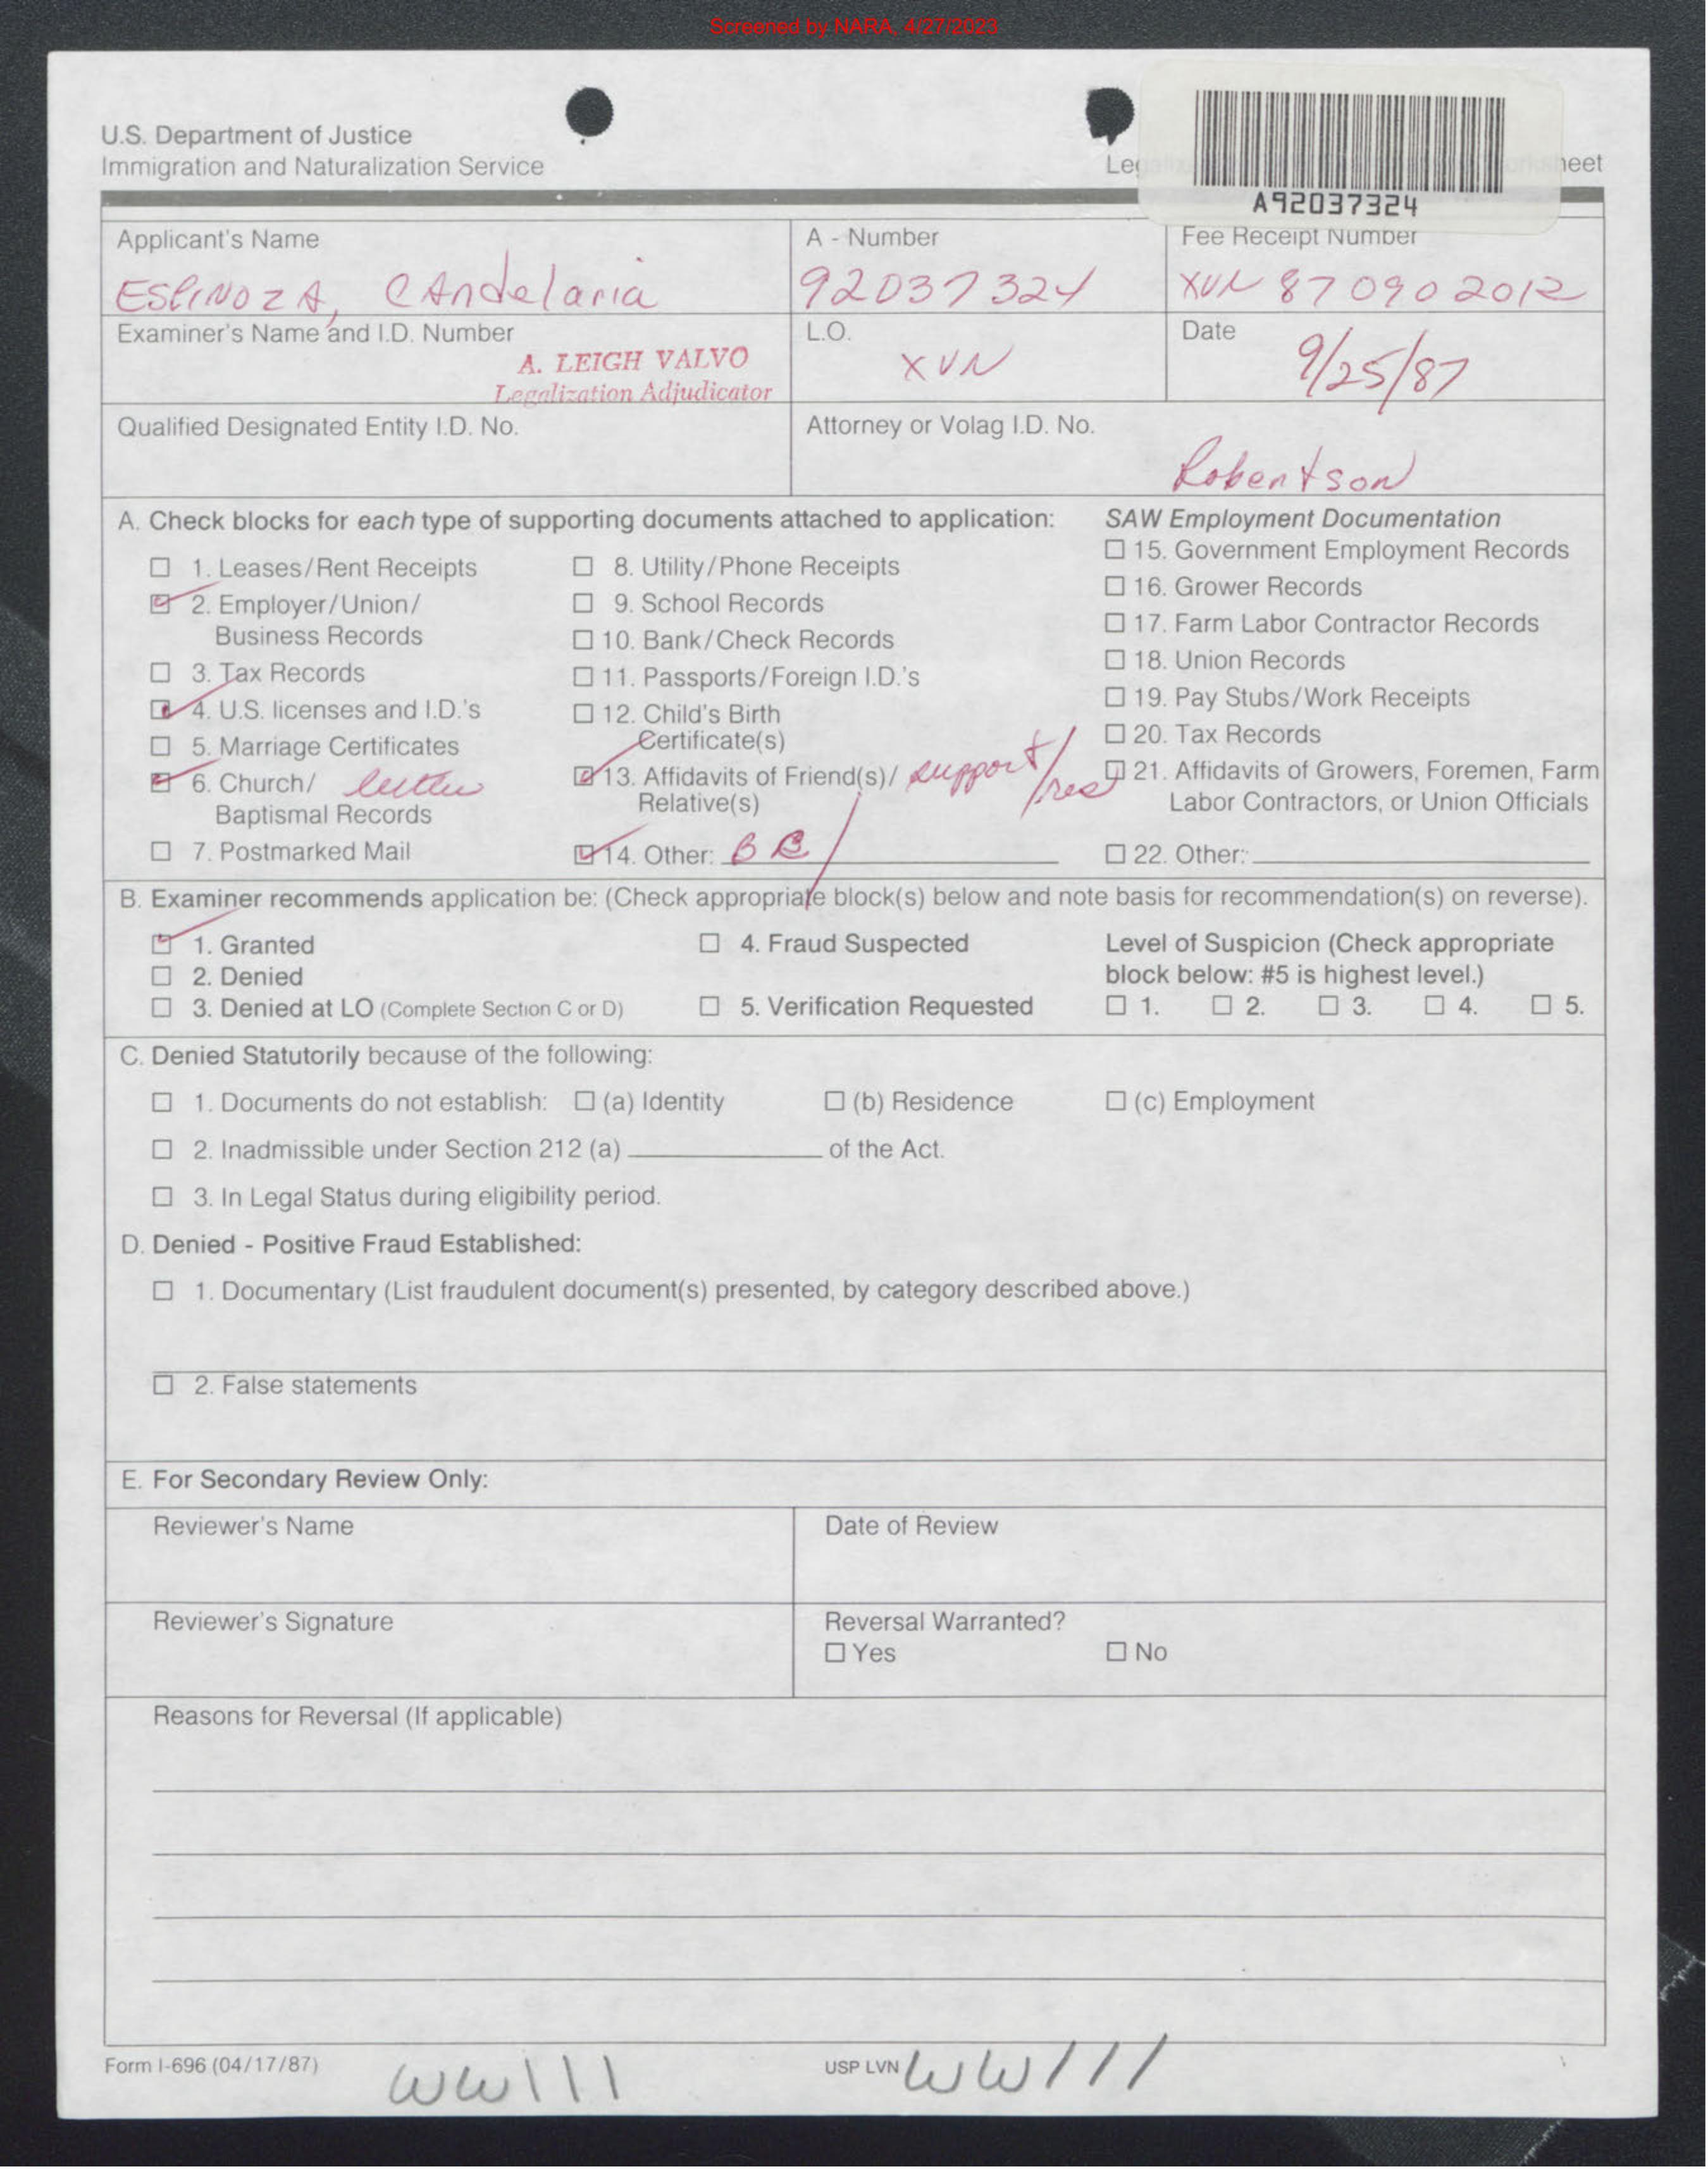 Screened by NARA, 4/27/2023
U.S. Department of Justice
Immigration and Naturalization Service
Leg heet
A92037324
Applicant's Name
ESPINOZA, CANdelaria
A - Number
92037324
Fee Receipt Number
XVN 870902012
Examiner's Name and I.D. Number
A. LEIGH VALVO
Legalization Adjudicator
L.O.
XVN
Date
9/25/87
Qualified Designated Entity I.D. No.
Attorney or Volag I.D. No.
Robertson
A. Check blocks for each type of supporting documents attached to application:
☐ 1. Leases/Rent Receipts
☑ 2. Employer/Union/
Business Records
☐ 3. Tax Records
☑ 4. U.S. licenses and I.D.'s
☐ 5. Marriage Certificates
☑ 6. Church/ letter
Baptismal Records
☐ 7. Postmarked Mail
☐ 8. Utility/Phone Receipts
☐ 9. School Records
☐ 10. Bank/Check Records
☐ 11. Passports/Foreign I.D.'s
☐ 12. Child's Birth
Certificate(s)
☑ 13. Affidavits of Friend(s)/ support/res
Relative(s)
☑ 14. Other: BC
SAW Employment Documentation
☐ 15. Government Employment Records
☐ 16. Grower Records
☐ 17. Farm Labor Contractor Records
☐ 18. Union Records
☐ 19. Pay Stubs/Work Receipts
☐ 20. Tax Records
☐ 21. Affidavits of Growers, Foremen, Farm
Labor Contractors, or Union Officials
☐ 22. Other:
B. Examiner recommends application be: (Check appropriate block(s) below and note basis for recommendation(s) on reverse).
☑ 1. Granted
☐ 2. Denied
☐ 3. Denied at LO (Complete Section C or D)
☐ 4. Fraud Suspected
☐ 5. Verification Requested
Level of Suspicion (Check appropriate
block below: #5 is highest level.)
☐ 1. ☐ 2. ☐ 3. ☐ 4. ☐ 5.
C. Denied Statutorily because of the following:
☐ 1. Documents do not establish: ☐ (a) Identity ☐ (b) Residence ☐ (c) Employment
☐ 2. Inadmissible under Section 212 (a) ____ of the Act.
☐ 3. In Legal Status during eligibility period.
D. Denied - Positive Fraud Established:
☐ 1. Documentary (List fraudulent document(s) presented, by category described above.)
☐ 2. False statements
E. For Secondary Review Only:
Reviewer's Name
Date of Review
Reviewer's Signature
Reversal Warranted?
☐ Yes ☐ No
Reasons for Reversal (If applicable)
Form I-696 (04/17/87)
WW\\\
USP LVN
WW///